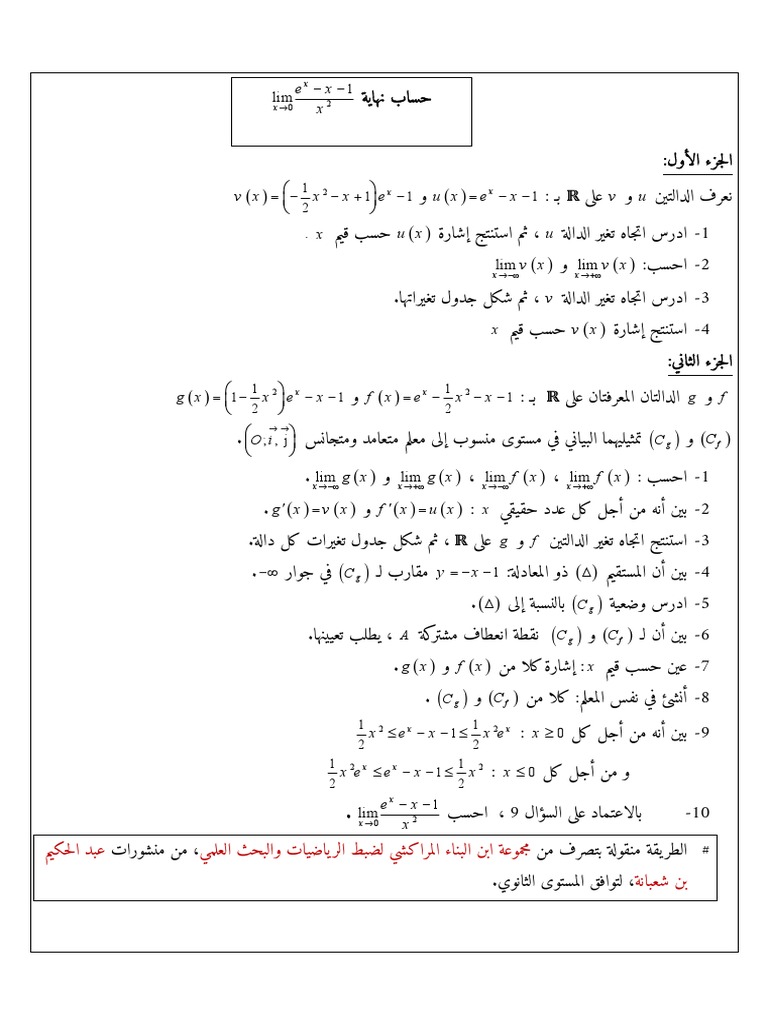 حساب نهاية $\lim_{x \to 0} \frac{e^x - x - 1}{x^2}$
الجزء الأول:
نعرف الدالتين $u$ و $v$ على $\mathbb{R}$ بـ : $u(x) = e^x - x - 1$ و $v(x) = \left(-\frac{1}{2}x^2 - x + 1\right)e^x - 1$
1- ادرس اتجاه تغير الدالة $u$ ، ثم استنتج إشارة $u(x)$ حسب قيم $x$ .
2- احسب: $\lim_{x \to +\infty} v(x)$ و $\lim_{x \to -\infty} v(x)$
3- ادرس اتجاه تغير الدالة $v$ ، ثم شكل جدول تغيراتها.
4- استنتج إشارة $v(x)$ حسب قيم $x$
الجزء الثاني:
$f$ و $g$ الدالتان المعرفتان على $\mathbb{R}$ بـ : $f(x) = e^x - \frac{1}{2}x^2 - x - 1$ و $g(x) = \left(1 - \frac{1}{2}x^2\right)e^x - x - 1$
$(C_f)$ و $(C_g)$ تمثيليهما البياني في مستوى منسوب إلى معلم متعامد ومتجانس $\left(O; \vec{i}, \vec{j}\right)$.
1- احسب : $\lim_{x \to +\infty} f(x)$ ، $\lim_{x \to -\infty} f(x)$ ، $\lim_{x \to +\infty} g(x)$ و $\lim_{x \to -\infty} g(x)$.
2- بين أنه من أجل كل عدد حقيقي $x$ : $f'(x) = u(x)$ و $g'(x) = v(x)$.
3- استنتج اتجاه تغير الدالتين $f$ و $g$ على $\mathbb{R}$ ، ثم شكل جدول تغيرات كل دالة.
4- بين أن المستقيم $(\Delta)$ ذو المعادلة: $y = -x - 1$ مقارب لـ $(C_g)$ في جوار $-\infty$.
5- ادرس وضعية $(C_g)$ بالنسبة إلى $(\Delta)$.
6- بين أن لـ $(C_f)$ و $(C_g)$ نقطة انعطاف مشتركة $A$ ، يطلب تعيينها.
7- عين حسب قيم $x$: إشارة كلا من $f(x)$ و $g(x)$.
8- أنشئ في نفس المعلم: كلا من $(C_f)$ و $(C_g)$ .
9- بين أنه من أجل كل $x \geq 0$ : $\frac{1}{2}x^2 \leq e^x - x - 1 \leq \frac{1}{2}x^2e^x$
و من أجل كل $x \leq 0$ : $\frac{1}{2}x^2e^x \leq e^x - x - 1 \leq \frac{1}{2}x^2$
10- بالاعتماد على السؤال 9 ، احسب $\lim_{x \to 0} \frac{e^x - x - 1}{x^2}$ .
# الطريقة منقولة بتصرف من مجموعة ابن البناء المراكشي لضبط الرياضيات والبحث العلمي، من منشورات عبد الحكيم
بن شعبانة، لتوافق المستوى الثانوي.